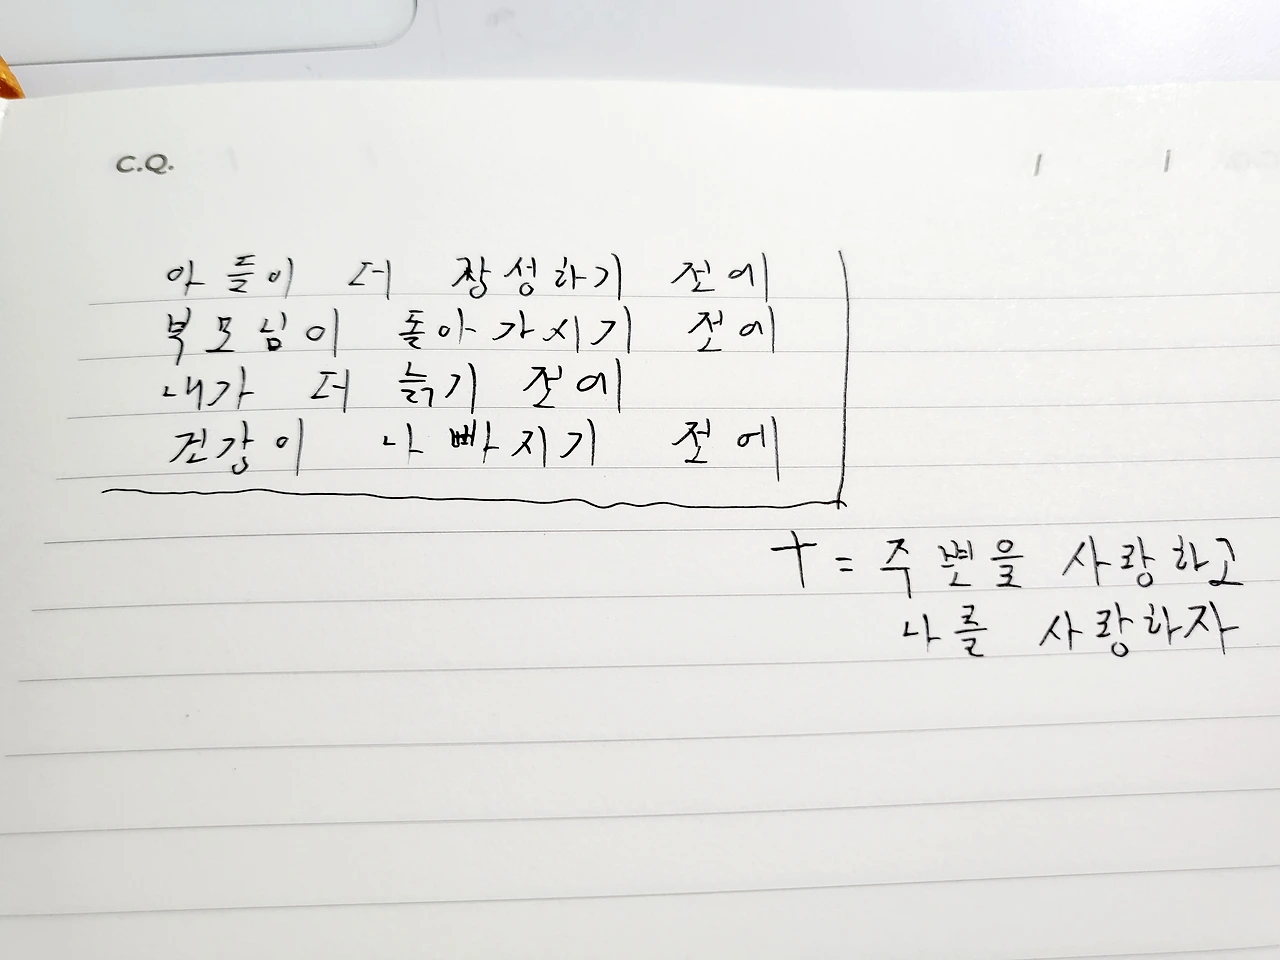 C.Q.
/ /
아들이 더 장성하기 전에
부모님이 돌아가시기 전에
내가 더 늙기 전에
건강이 나빠지기 전에
+ = 주변을 사랑하고
나를 사랑하자